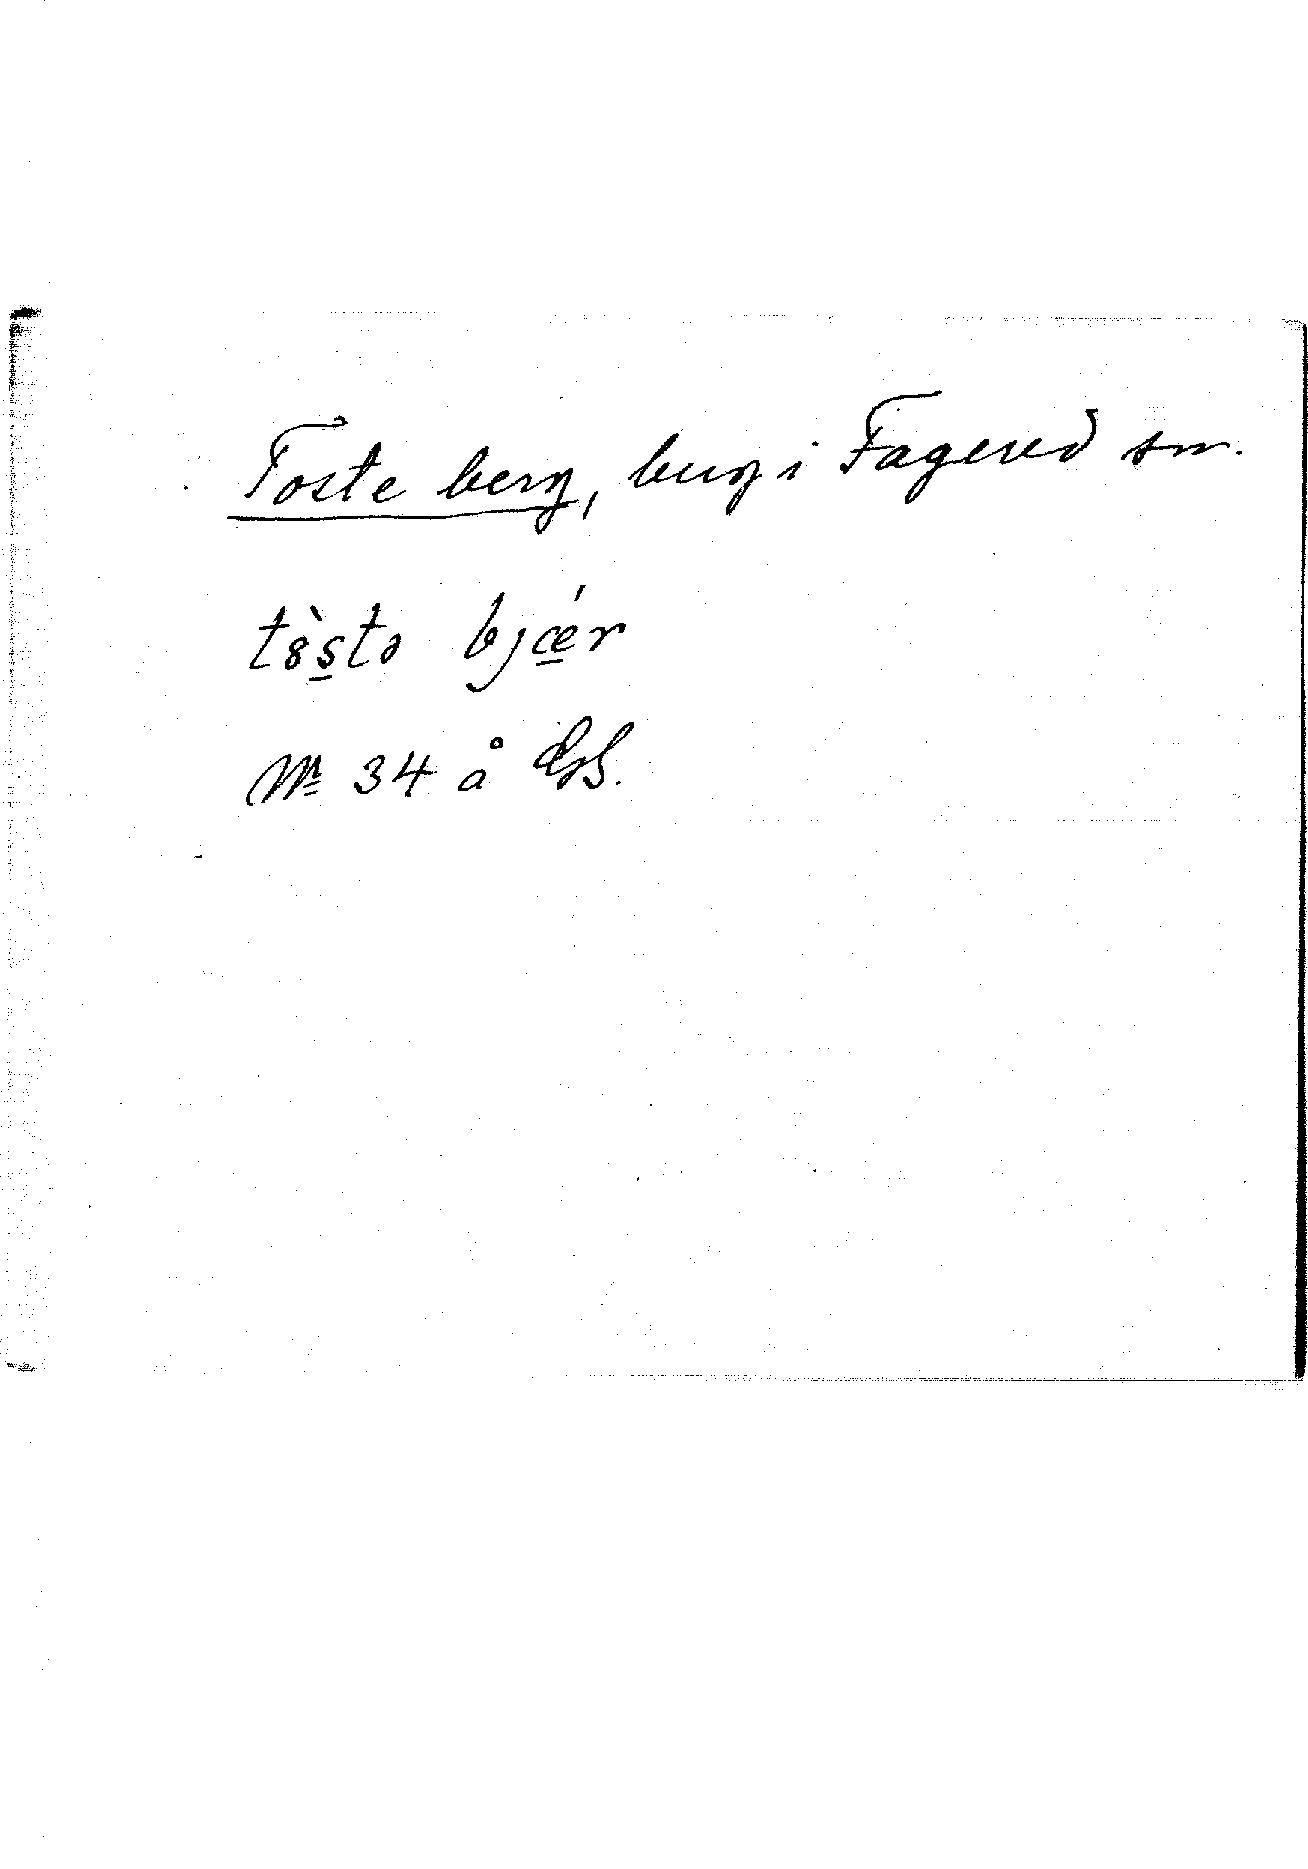 Toste berg, berg i Fagered sn.
t8̀s̲tə bjǽ̲r
Nr 34 å